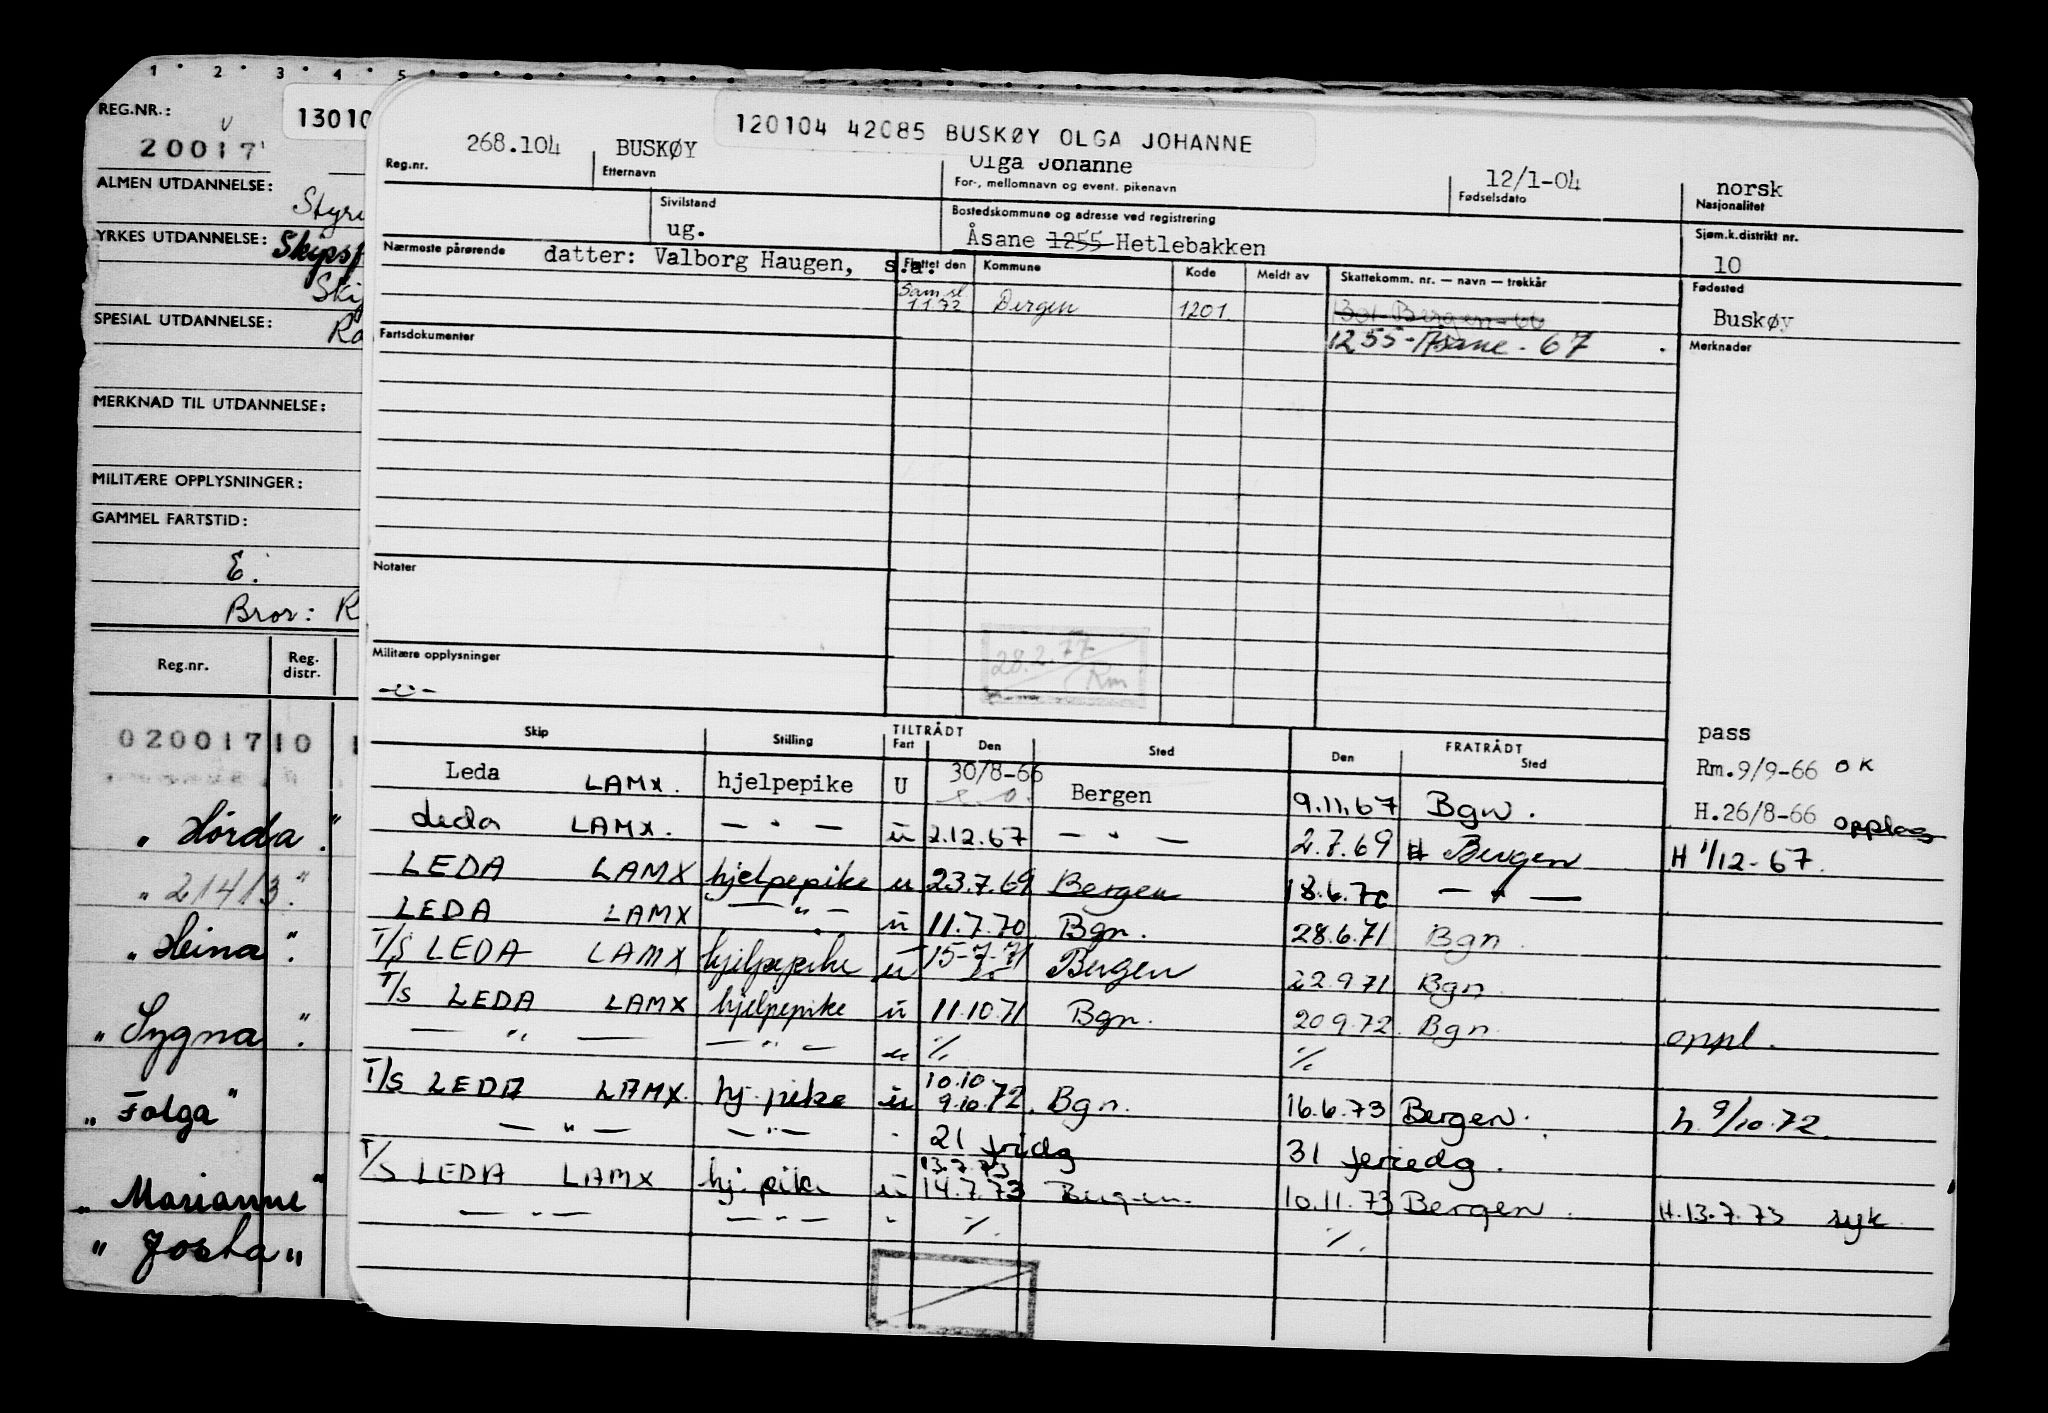 1 2 3 4 5
REG.NR.:
20017
ALMEN UTDANNELSE:
YRKES UTDANNELSE:
SPESIAL UTDANNELSE:
MERKNAD TIL UTDANNELSE:
MILITÆRE OPPLYSNINGER:
GAMMEL FARTSTID:
E.
Bror:
Reg.nr. Reg. distr.
02001710
" Hørda "
" 21413 "
" Heina "
" Sygna "
" Folga "
" Marianne "
" Josta "
13010
120104 42085 BUSKØY OLGA JOHANNE
268.104 BUSKØY Olga Johanne 12/1-04 norsk
Reg.nr. Etternavn For-, mellomnavn og event. pikenavn Fødselsdato Nasjonalitet
Sivilstand Bostedskommune og adresse ved registrering Sjøm.k.distrikt nr.
ug. Åsane 1255 Hetlebakken 10
Nærmeste pårørende datter: Valborg Haugen, s.a.
Flyttet den Kommune Kode Meldt av Skattekomm. nr. — navn — trekkår Fødested
Sam.sl 1.1.72 Bergen 1201 1301-Bergen-66 Buskøy
Fartsdokumenter 1255-Åsane-67 Merknader
Notater
28.2.77 Rm
Militære opplysninger
Skip Stilling TILTRÅDT Fart Den Sted FRATRÅDT Den Sted pass
Leda LAMX. hjelpepike U 30/8-66 Bergen 9.11.67 Bgn. Rm.9/9-66 OK
H.26/8-66 opplag
Leda LAMX. — " — u 2.12.67 — " — 2.7.69 Bergen H 1/12-67
LEDA LAMX hjelpepike u 23.7.69 Bergen 18.6.70 — " —
LEDA LAMX — " — u 11.7.70 Bgn. 28.6.71 Bgn.
T/S LEDA LAMX hjelpepike u 15-7-71 Bergen 22.9.71 Bgn
T/S LEDA LAMX hjelpepike u 11.10.71 Bgn. 20.9.72 Bgn. oppl.
— " — — " — u % %
T/S LEDA LAMX. hj.pike u 10.10 9.10.72. Bgn. 16.6.73 Bergen. h. 9/10.72.
— " — — " — 21 fridg 31 feriedg.
T/S LEDA LAMX hj.pike u 13.7.73 14.7.73 Bergen. 10.11.73 Bergen. H.13.7.73 syk
— " — — " — " % %